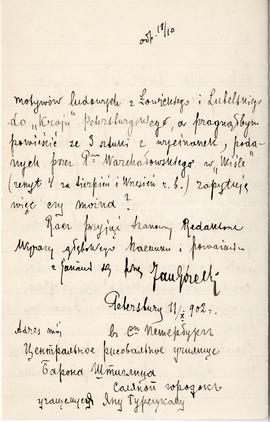 odp. 18/10
motywów ludowych z Łowickiego i Lubelskiego
do „Kraju" Petersburskiego, a pragnąłbym
powieścić ze 3 sztuki z wycinanek, poda-
nych przez Pna Warchałowskiego w „Wiśle"
(zeszyt 4 za Sierpień i Wrzesień r. b.) zapytuję
więc czy można?
Racz przyjąć Szanowny Redaktorze
Wyrazy głębokiego szacunku i poważania
z jakimi
Petersburg 11/X 902 r.
Adres mój
въ С. Петербургъ
Центральное училище
Барона Штиглица
Соляной городокъ
учащемуся Яну